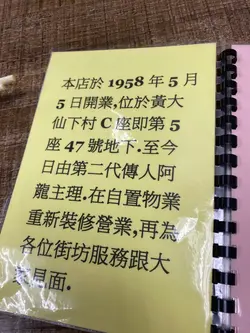 本店於 1958 年 5 月
5 日開業,位於黃大
仙下村 C 座即第 5
座 47 號地下.至今
日由第二代傳人阿
龍主理.在自置物業
重新裝修營業,再為
各位街坊服務跟大
見面.